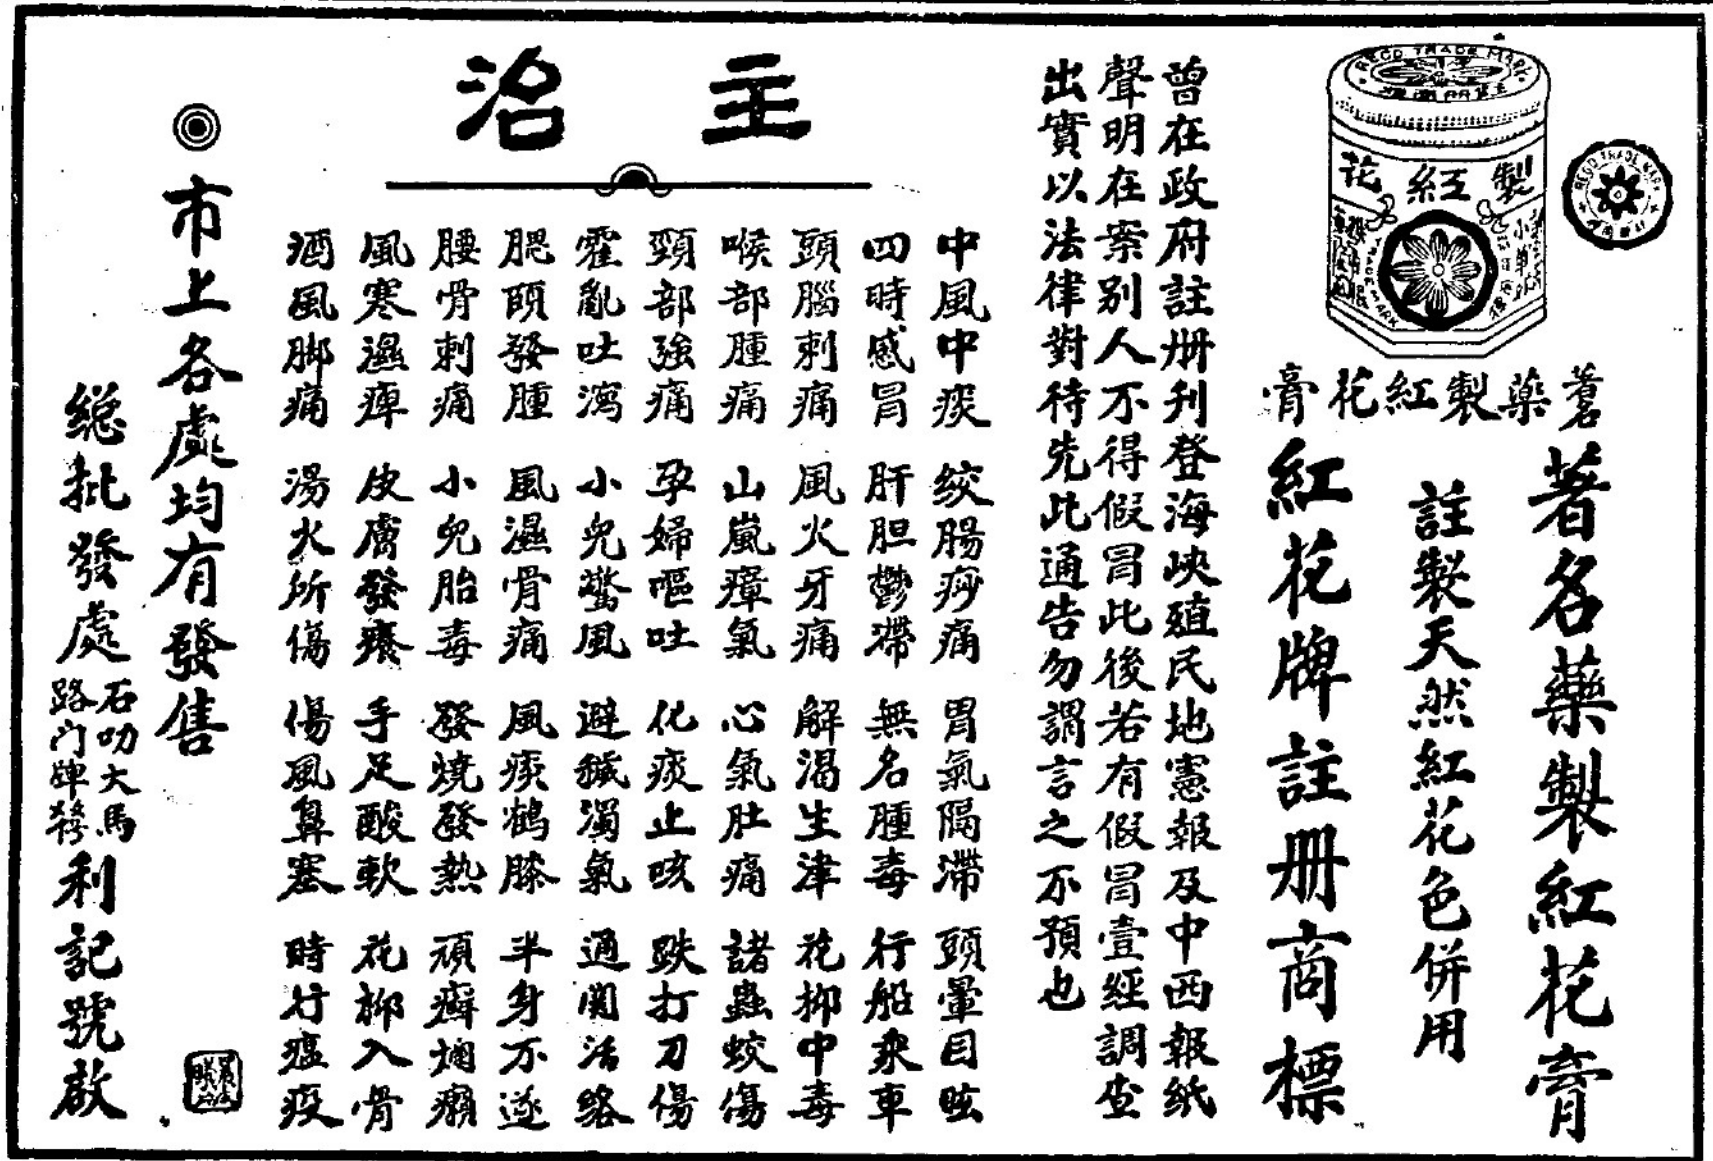 REGD TRADE MARK
REGD TRADE MARK
製紅花
TRADE MARK
藥製紅花膏
著名藥製紅花膏
註製天然紅花色併用
紅花牌註册商標
曾在政府註册刋登海峽殖民地憲報及中西報紙
聲明在案別人不得假冒此後若有假冒壹經調查
出實以法律對待先此通告勿謂言之不預也
主治
中風中痰 絞腸痧痛 胃氣隔滯 頭暈目眩
四時感冒 肝胆鬱滯 無名腫毒 行船乘車
頭腦刺痛 風火牙痛 解渴生津 花柳中毒
喉部腫痛 山嵐瘴氣 心氣肚痛 諸蟲蛟傷
頸部強痛 孕婦嘔吐 化痰止咳 跌打刀傷
霍亂吐瀉 小兒驚風 避穢濁氣 通関活絡
腮頤發腫 風濕骨痛 風痰鶴膝 半身不遂
腰骨刺痛 小兒胎毒 發燒發熱 頑癬爛癩
風寒濕痺 皮膚發癢 手足酸軟 花柳入骨
酒風脚痛 湯火所傷 傷風鼻塞 時行瘟疫
市上各處均有發售
総批發處
石叻大馬
路门牌
利記號啟